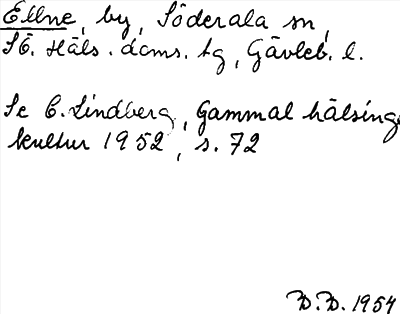 Ellne, by, Söderala sn,
Sö. Häls. doms. tg, Gävleb. l.
Se C. Lindberg, Gammal hälsinge
kultur 1952, s. 72
B.B. 1954